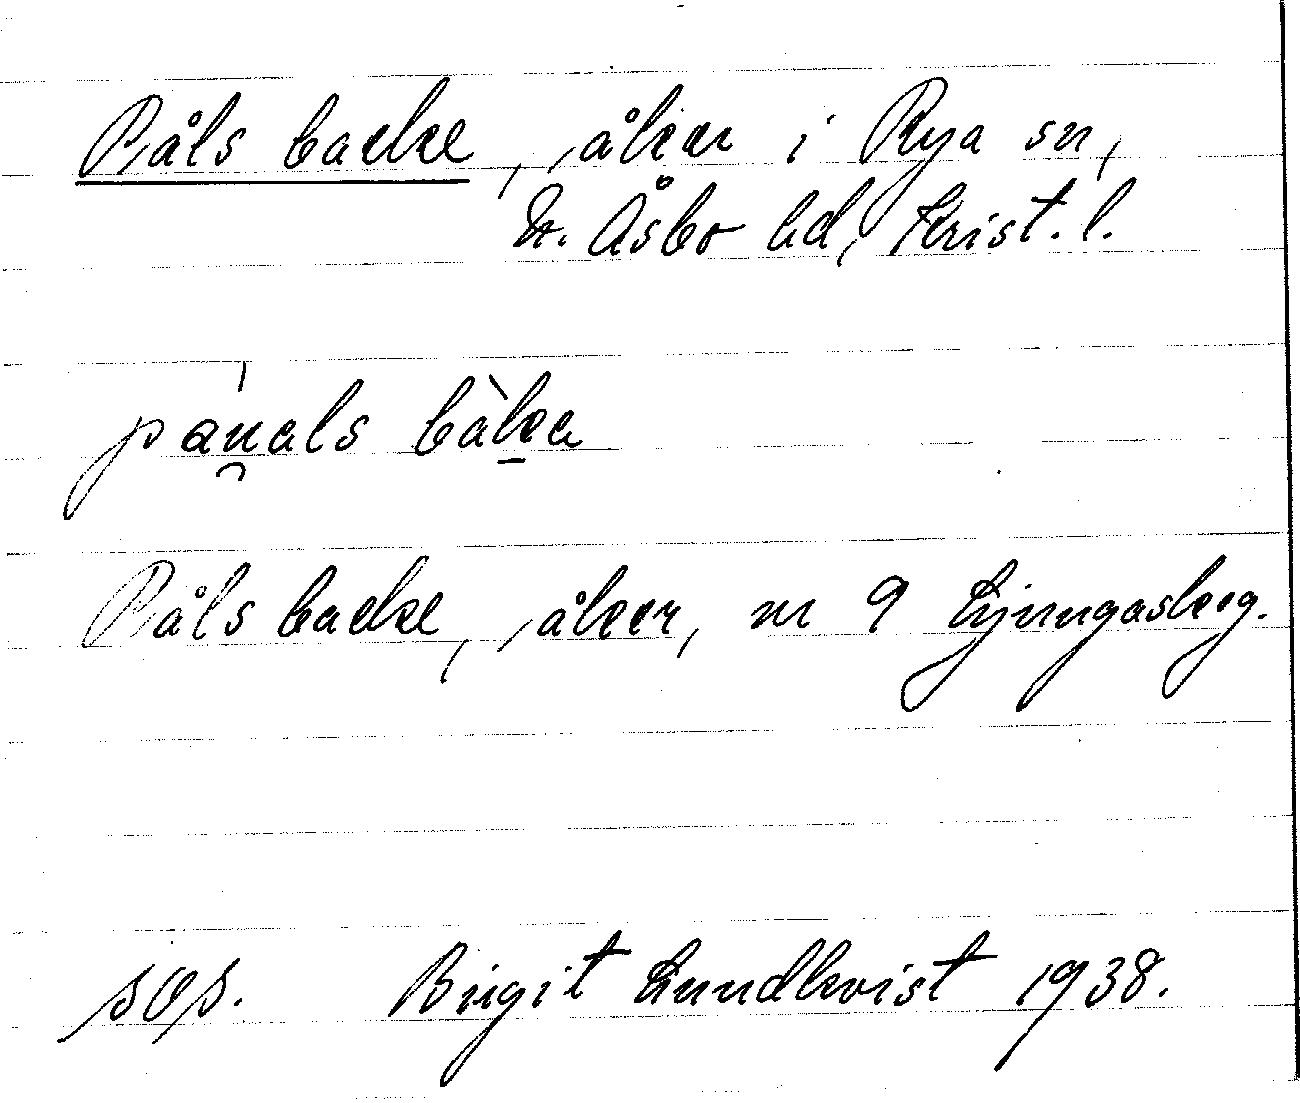 Påls backe, åker i Rya sn,
N. Åsbo hd, Krist. l.
Påls backe, åker, nr 9 Ljungaskog.
sOs. Birgit Lundkvist 1938.